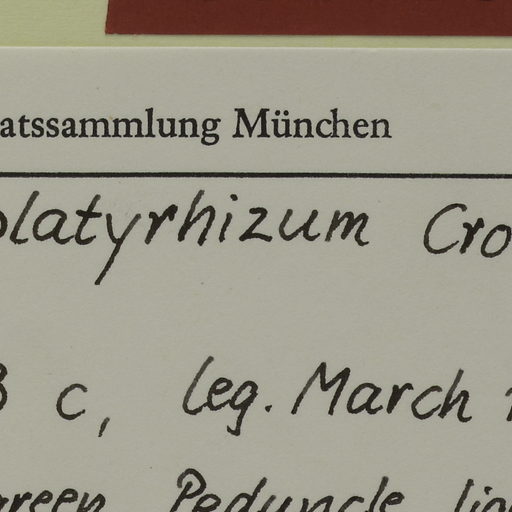 atssammlung München
platyrhizum Cro
c, leg. March
green Peduncle lig